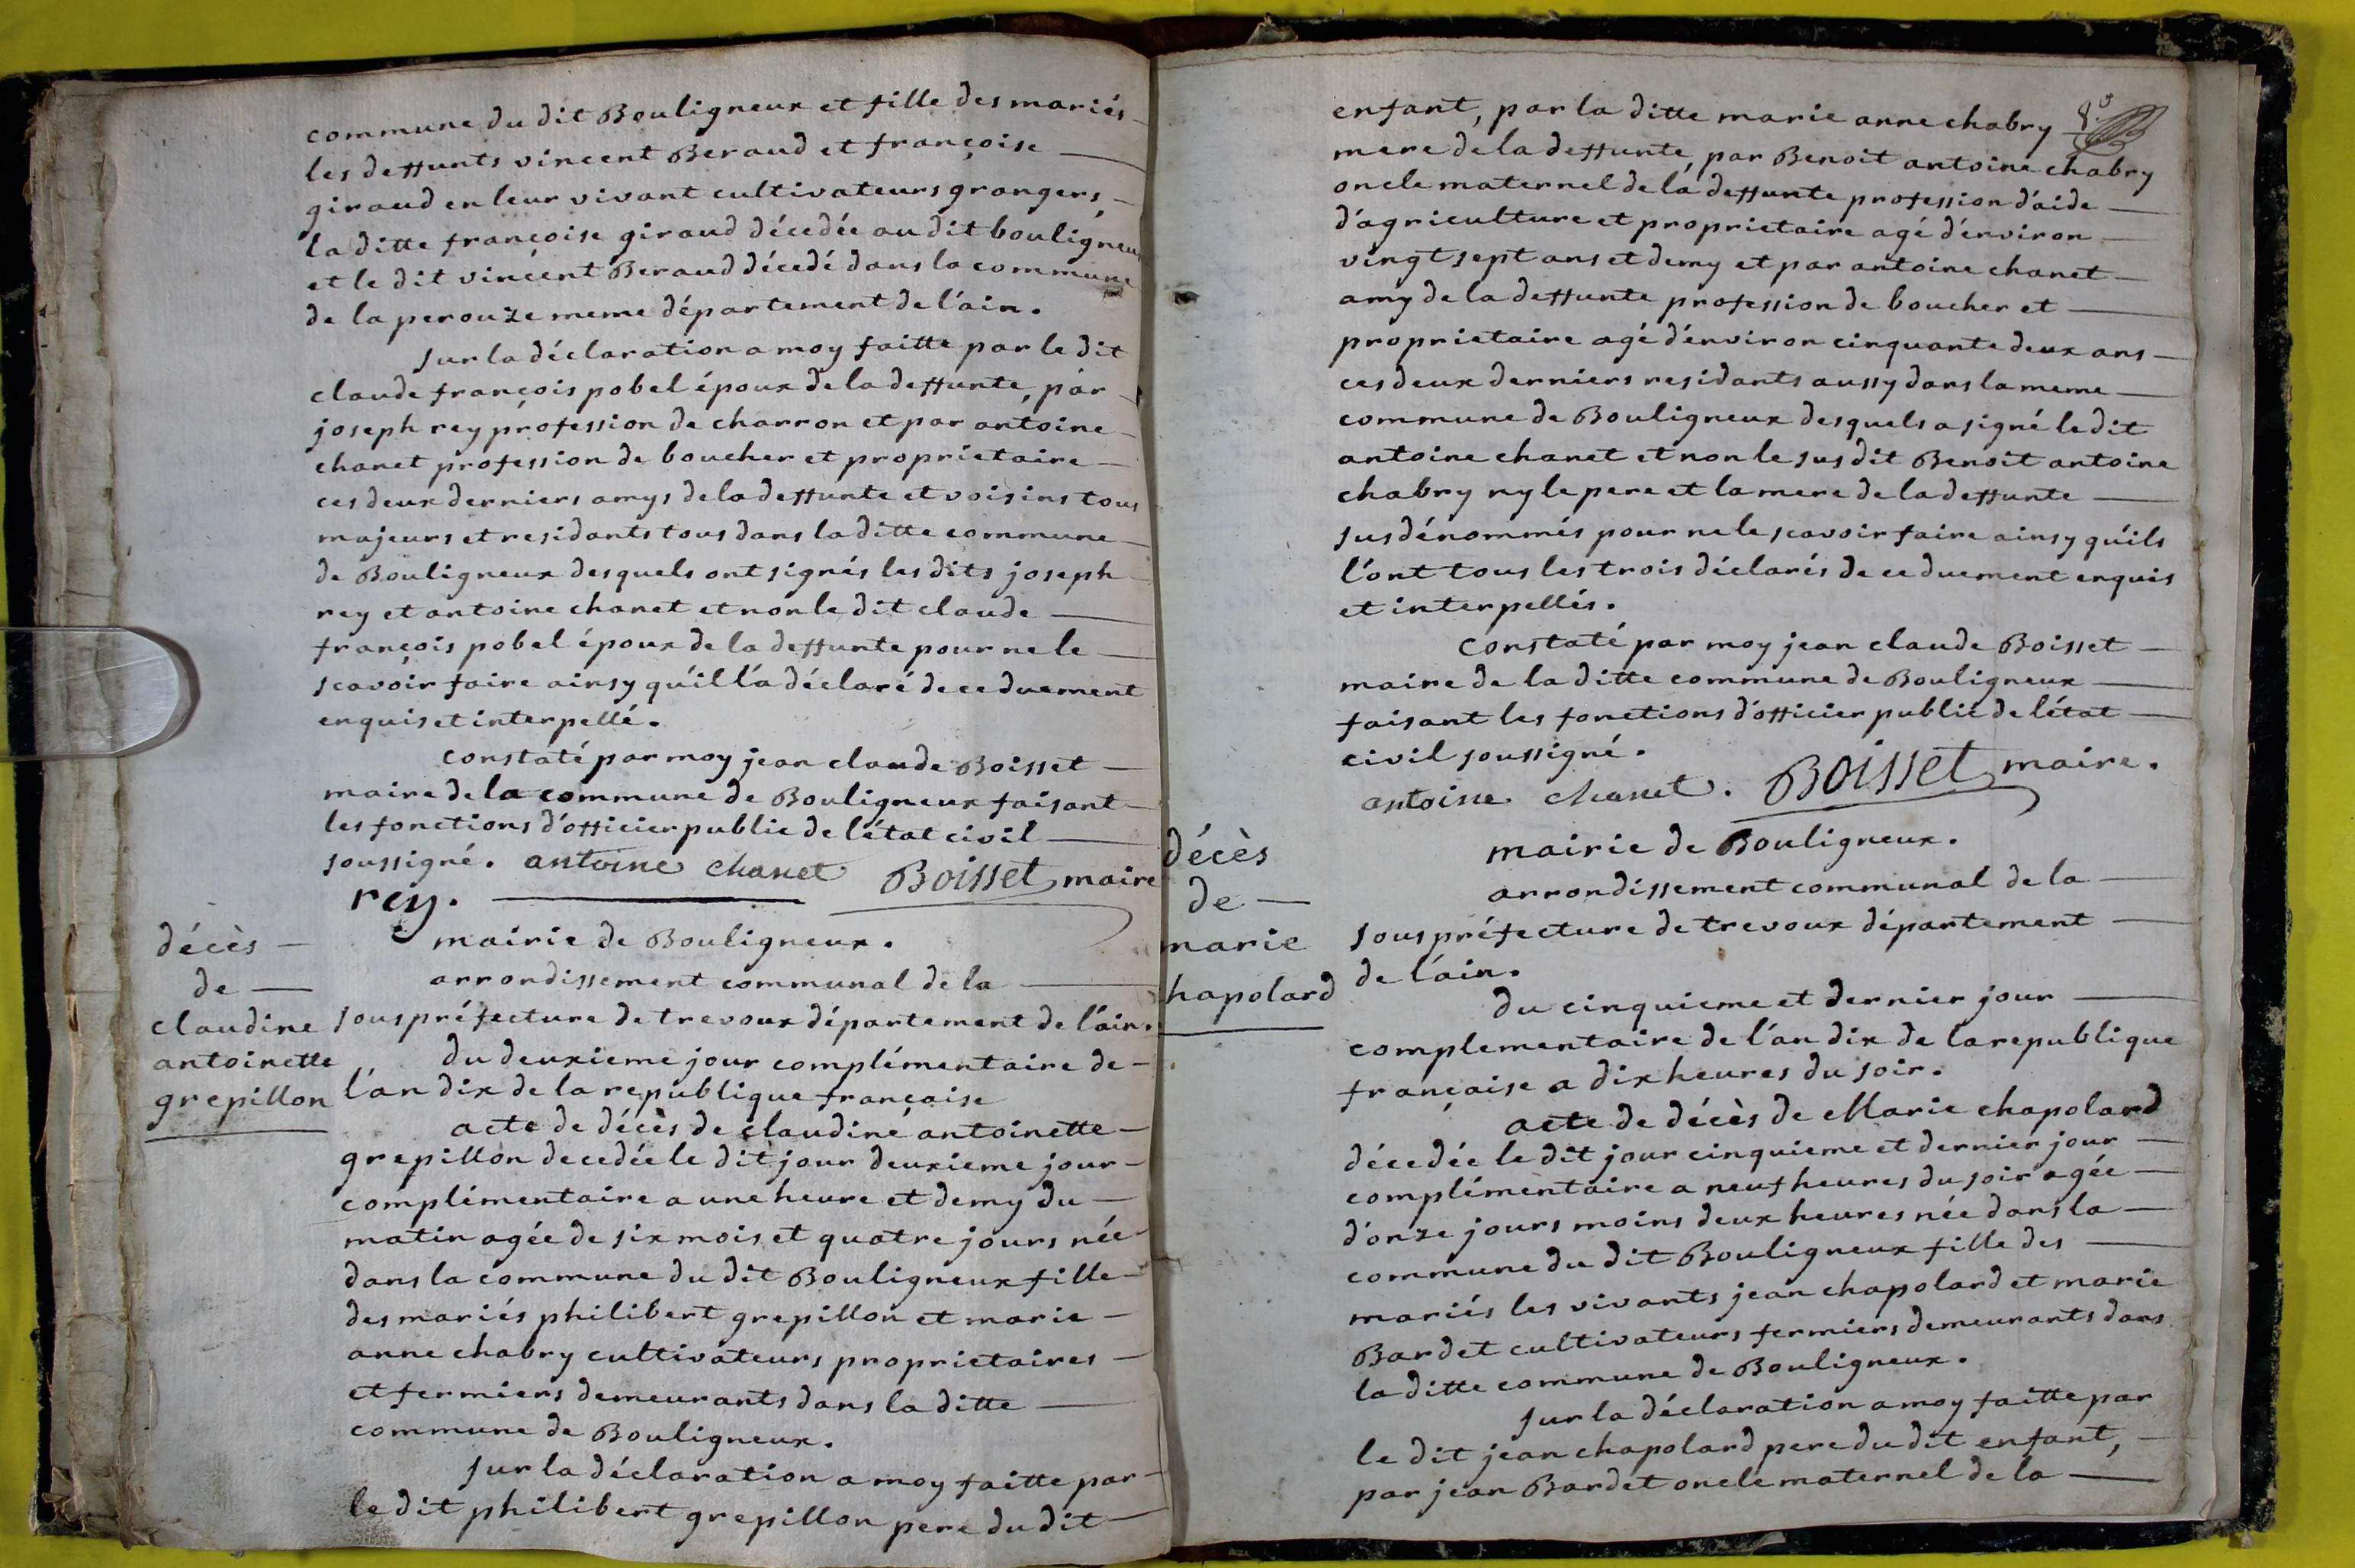 commune du dit Bouligneux et fille des mariés
les deffunts vincent Beraud et françoise
giraud en leur vivant cultivateurs grangers,
la ditte françoise giraud décedée au dit bouligneux
et le dit vincent Beraud décedé dans la commune
de la perouze meme département de l'ain.
sur la déclaration a moy faitte par le dit
claude françois pobel époux de la deffunte, par
joseph rey profession de charron et par antoine
chanet profession de boucher et proprietaire
ces deux derniers amys de la deffunte et voisins tous
majeurs et residants tous dans la ditte commune
de Bouligneux desquels ont signés les dits joseph
rey et antoine chanet et non le dit claude
françois pobel époux de la deffunte pour ne le
scavoir faire ainsy qu'il l'a déclaré de ce duement
enquis et interpellé.
constaté par moy jean claude Boisset
maire de la commune de Bouligneux faisant
les fonctions d'officier public de l'état civil
soussigné. antoine chanet Boisset maire
rey.
décès
de
claudine
antoinette
grepillon
mairie de Bouligneux.
arrondissement communal de la
sous préfecture de trevoux département de l'ain.
du deuxieme jour complémentaire de
l'an dix de la republique française
acte de décès de claudine antoinette
grepillon decedée le dit jour deuxieme jour
complémentaire a une heure et demy du
matin agée de six mois et quatre jours née
dans la commune du dit Bouligneux fille
des mariés philibert grepillon et marie
anne chabry cultivateurs proprietaires
et fermiers demeurants dans la ditte
commune de Bouligneux.
sur la déclaration a moy faitte par
le dit philibert grepillon pere du dit
enfant, par la ditte marie anne chabry
mere de la deffunte, par Benoit antoine chabry
oncle maternel de la deffunte profession d'aide
d'agriculture et proprietaire agé d'environ
vingt sept ans et demy et par antoine chanet
amy de la deffunte profession de boucher et
proprietaire agé d'environ cinquante deux ans
ces deux derniers residants aussy dans la meme
commune de Bouligneux desquels a signé le dit
antoine chanet et non le sus dit Benoit antoine
chabry ny le pere et la mere de la deffunte
susdénommés pour ne le scavoir faire ainsy qu'ils
l'ont tous les trois déclarés de ce duement enquis
et interpellés.
constaté par moy jean claude Boisset
maire de la ditte commune de Bouligneux
faisant les fonctions d'officier public de l'état
civil soussigné.
antoine chanet. Boisset maire.
décès
de
marie
hapolard
mairie de Bouligneux.
arrondissement communal de la
sous préfecture de trevoux département
de l'ain.
du cinquieme et dernier jour
complementaire de l'an dix de la republique
française a dix heures du soir.
acte de décès de Marie chapolard
décedée le dit jour cinquieme et dernier jour
complémentaire a neuf heures du soir agée
d'onze jours moins deux heures née dans la
commune du dit Bouligneux fille des
mariés les vivants jean chapolard et marie
Bardet cultivateurs fermiers demeurants dans
la ditte commune de Bouligneux.
sur la déclaration a moy faitte par
le dit jean chapolard pere du dit enfant,
par jean Bardet oncle maternel de la